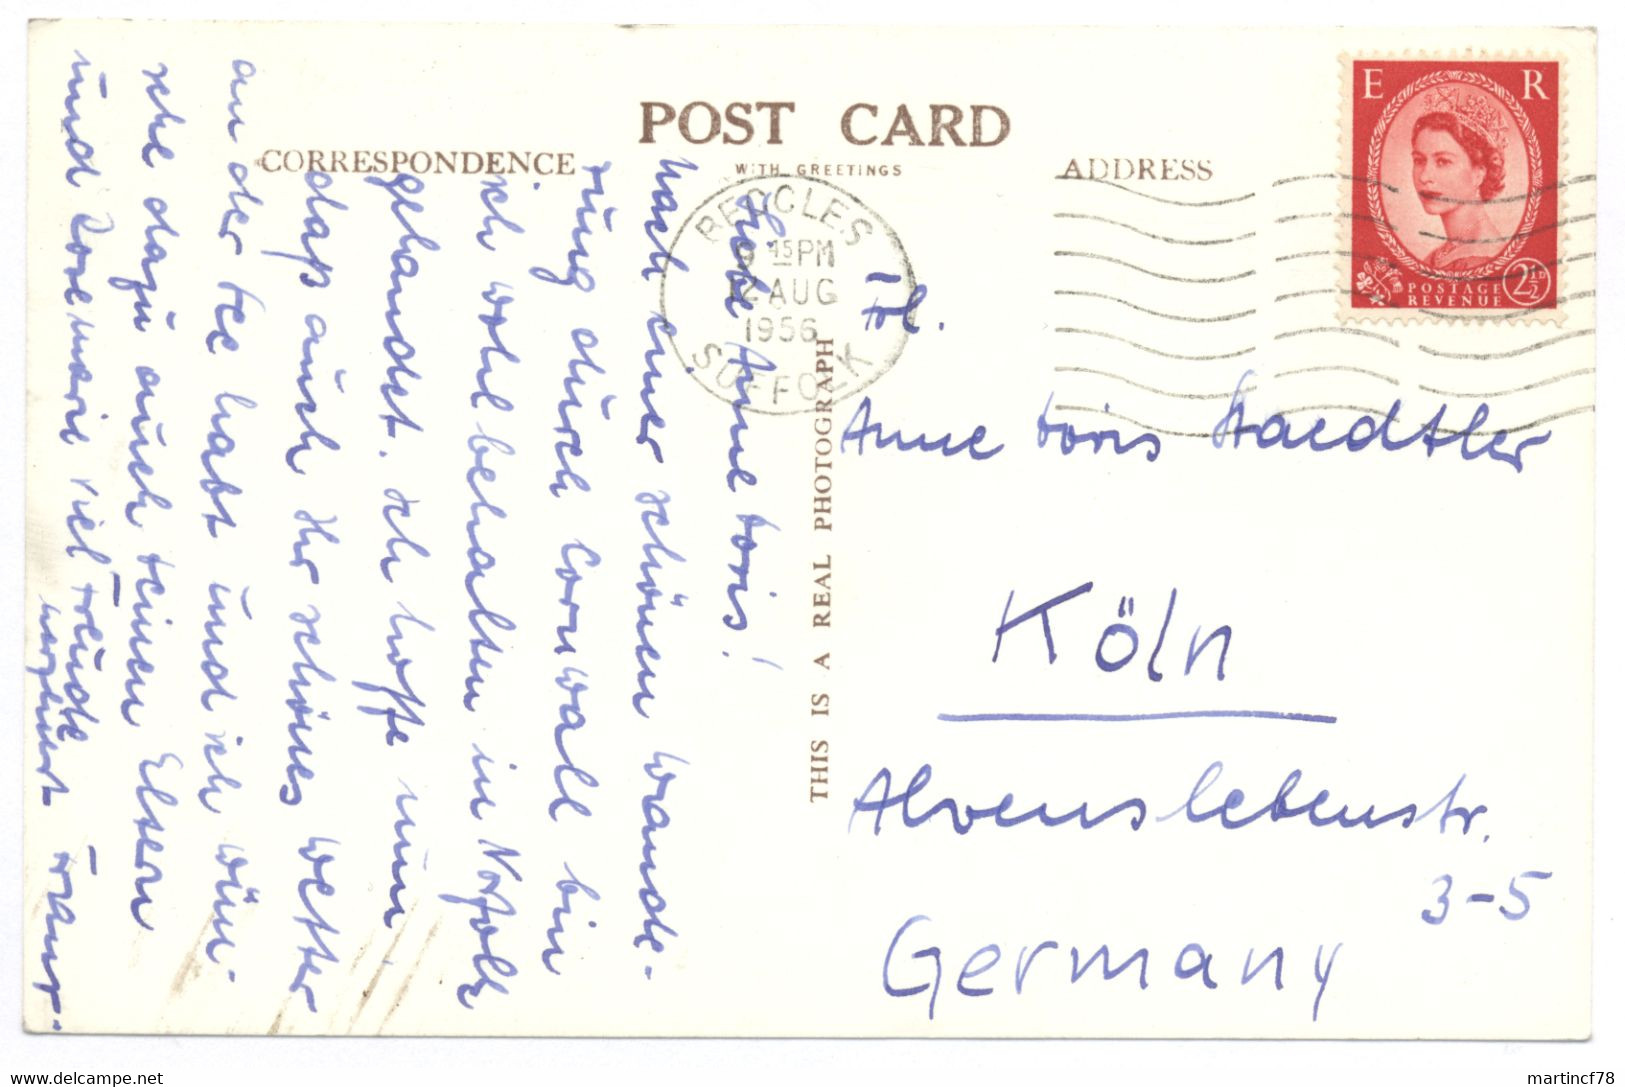 POST CARD
WITH GREETINGS
CORRESPONDENCE
ADDRESS
E R
POSTAGE
REVENUE
2½D
BECCLES
15 PM
12 AUG
1956
SUFFOLK
THIS IS A REAL PHOTOGRAPH
Liebe Anne Doris!
Nach einer schönen Wande-
rung durch Cornwall bin
ich wohlbehalten in Norfolk
gelandet. Ich hoffe nun,
daß auch Ihr schönes Wetter
an der See habt und ich wün-
sche dazu auch Deinen Eltern
und Rosemarie viel Freude
Frl.
Anne Doris Staedtler
Köln
Alvenslebenstr.
3-5
Germany
martincf78